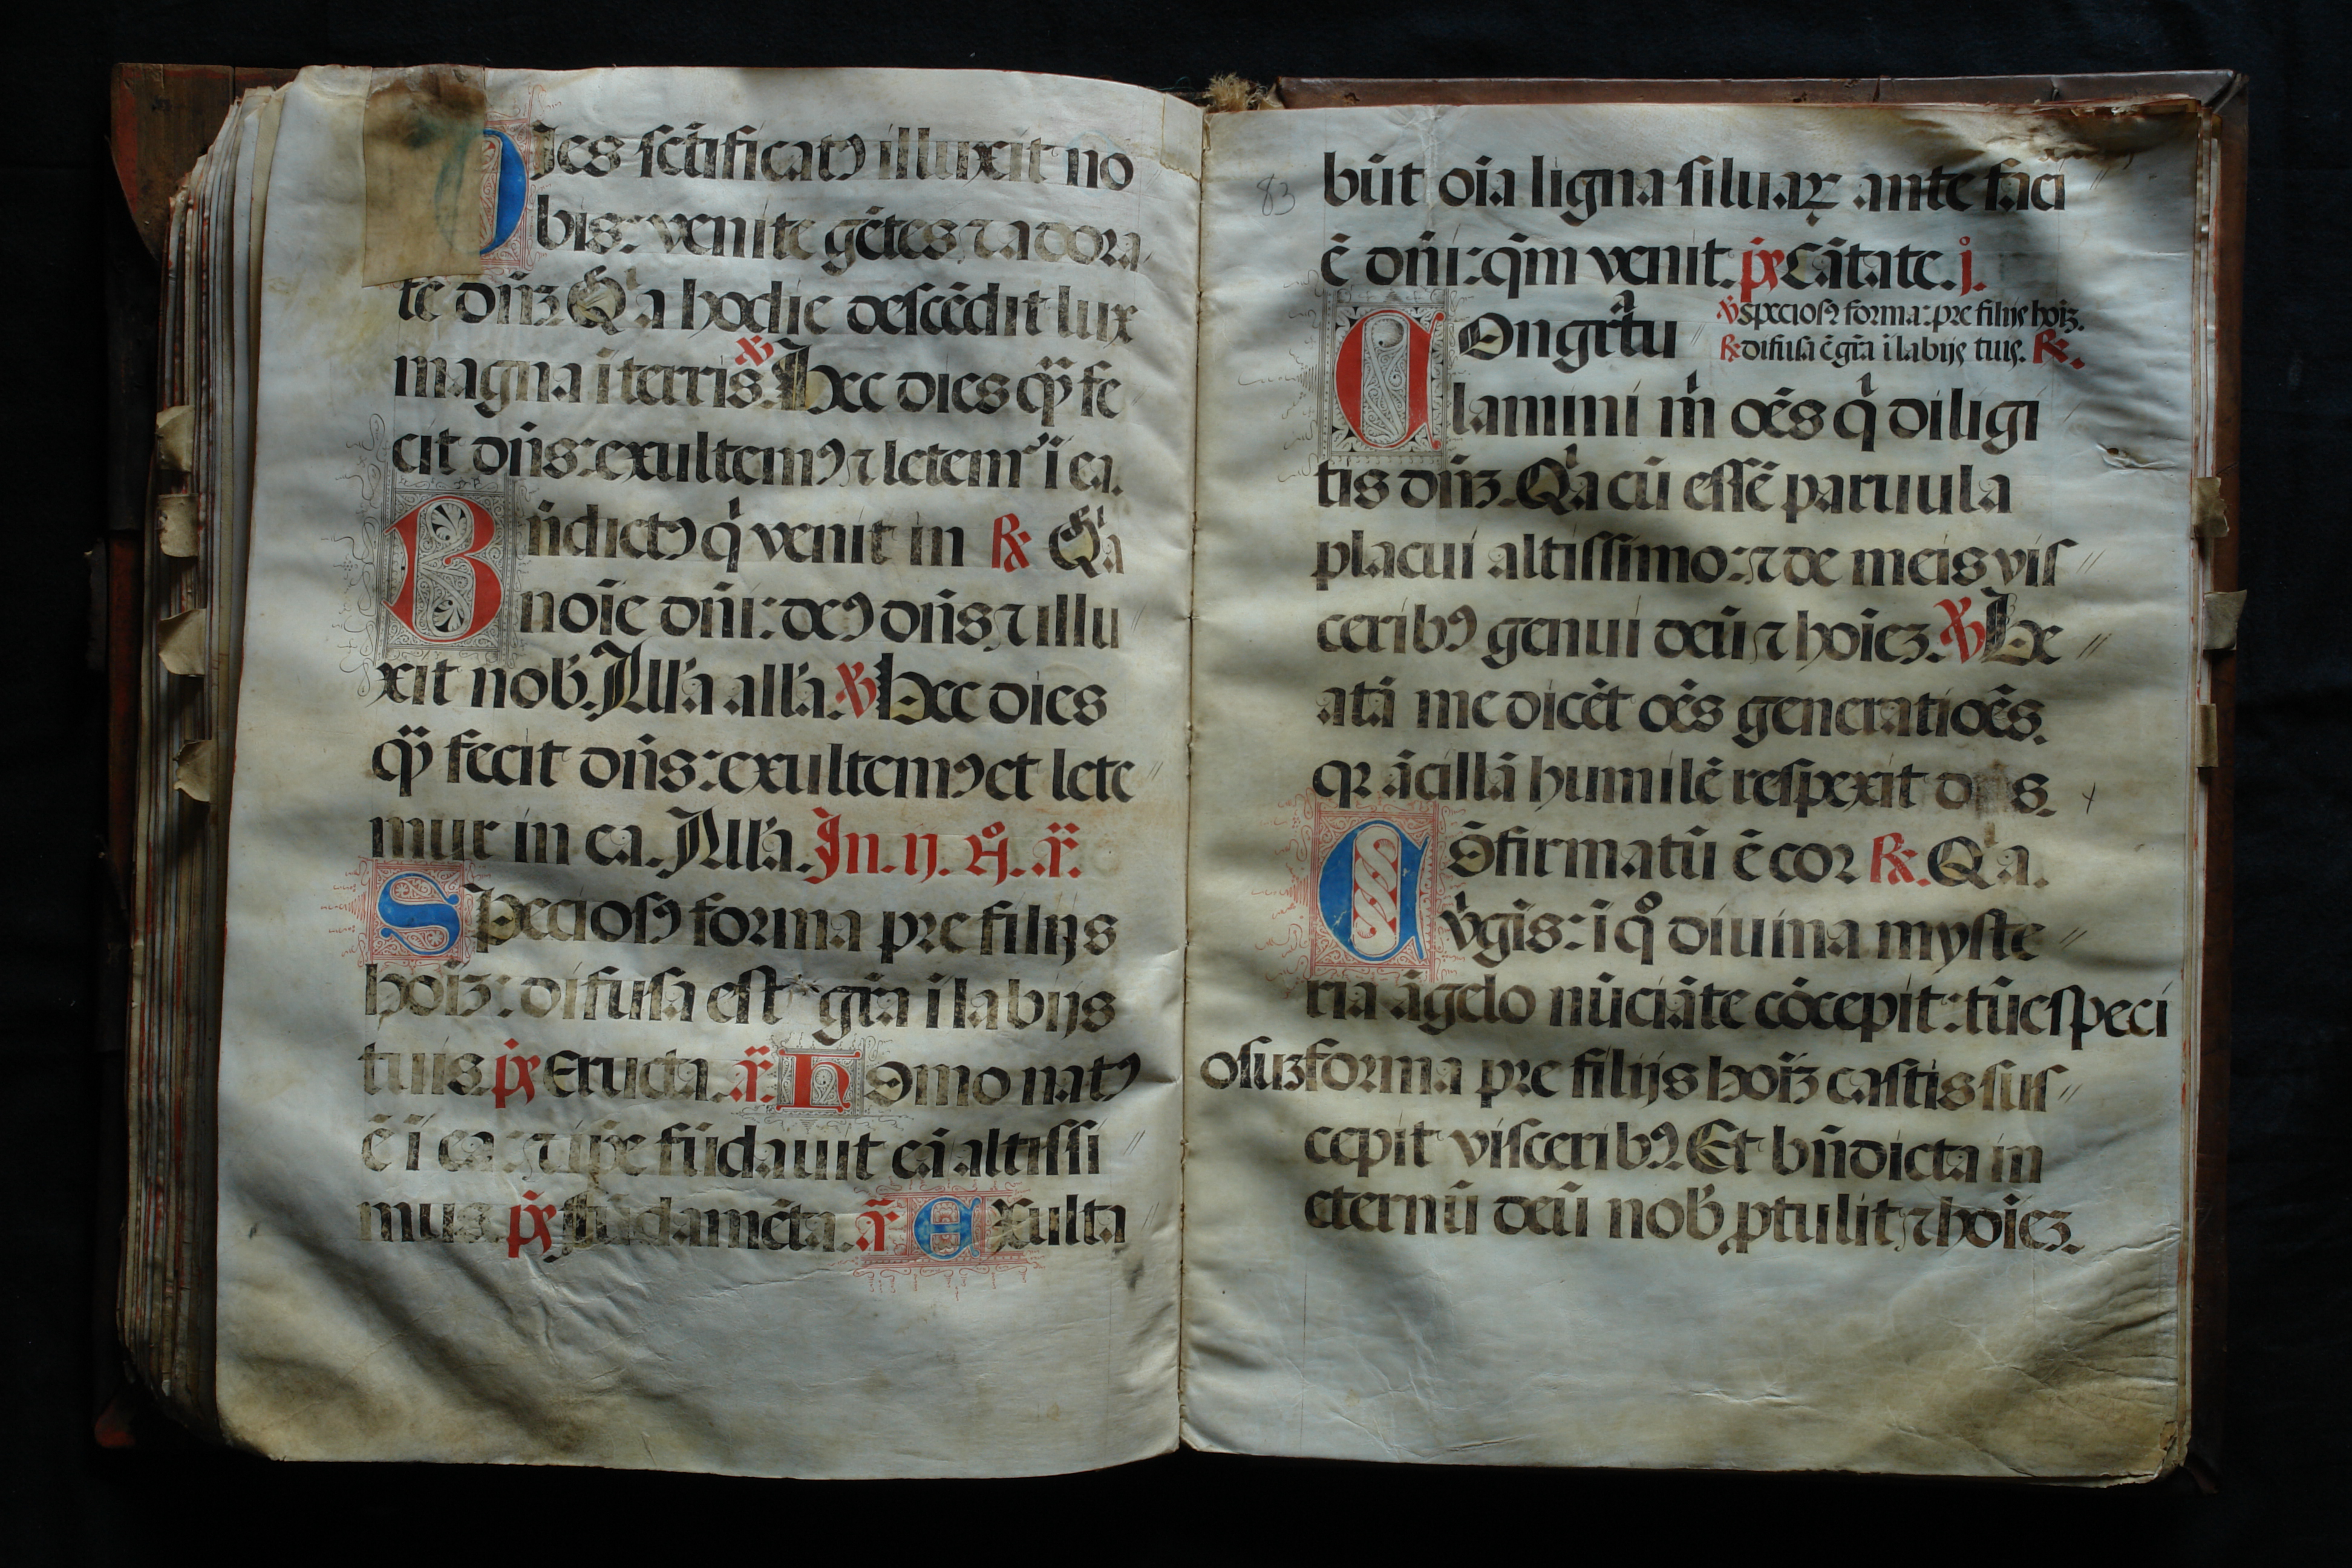 Dies sc̄tificatꝰ illuxit no
bis: venite gētes ⁊ adora
te dn̄ꝫ Qͥa hodie descēdit lux
magna ī terris. ℣ Hec dies q̄ fe
cit dn̄s: exultemꝰ ⁊ letemͬ ī ea.
Bn̄dictꝰ qͥ venit in ℟ Qͥa
noīe dn̄i: deꝰ dn̄s, ⁊ illu
xit nob̓. All'a all'a. ℣ Hec dies
q̄ fecit dn̄s: exultemꝰ et lete
mur in ea. All'a. In. ij. n̊. añ.
Speciosꝰ forma pre filijs
hoīꝫ: difusa est gr̄a ī labijs
tuis. p̄s Eructa. añ. Homo natꝰ
ē ī ea: ⁊ ip̄e fūdauit eā altissi
mus. p̄s fūdamēta. añ Exulta
83
būt oīa ligna siluaꝝ ante faci
ē dn̄i: qm̄ venit. p̄s Cātate. j̊.
Congrͣtu
℣ Speciosꝰ forma: pre filijs hoīꝫ.
℟ difusa ē gr̄a ī labijs tuis. ℟.
lamini mͥ oēs qͥ diligi
tis dn̄ꝫ. Qͥa cū essē paruula
placui altissimo: ⁊ de meis vis
ceribꝰ genui deū ⁊ hoīeꝫ. ℣ Be
atā me dicēt oēs generatiōēs.
qꝛ ācillā humilē respexit ds.
Cōfirmatū ē cor ℟. Qͥa.
vͥgīs: ī qͦ diuina myste
ria āgelo nūciāte cōcepit: tūc speci
osuꝫ forma pre filijs hoīꝫ castis sus
cepit visceribꝰ. Et bn̄dicta in
eternū deū nob̓ ꝓtulit ⁊ hoīeꝫ.